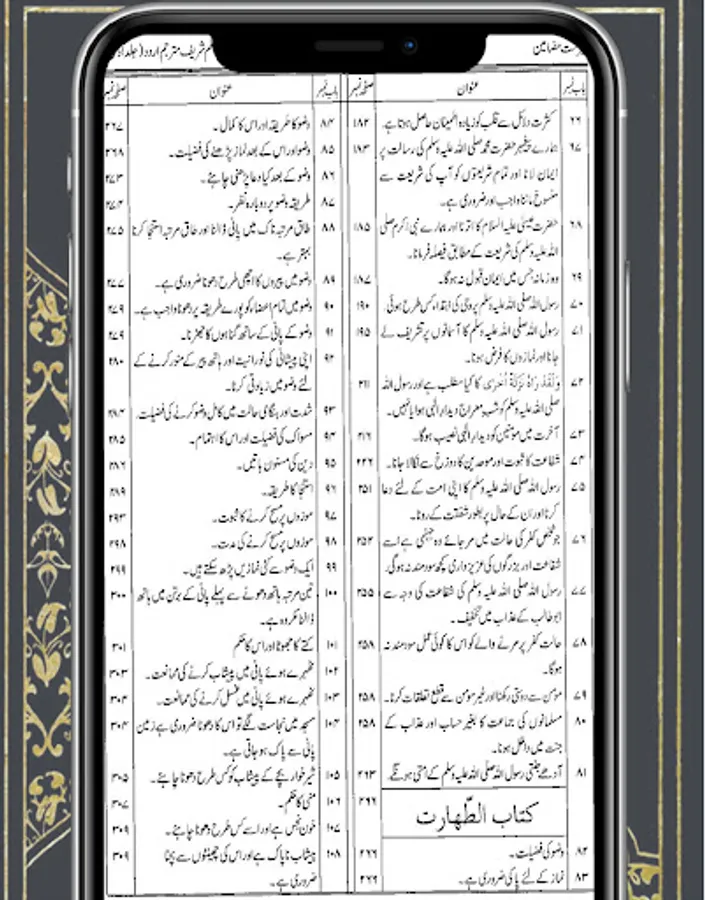 فہرست مضامین
مسلم شریف مترجم اردو (جلد اول)
باب نمبر عنوان صفحہ نمبر
۶۶ کثرت دلائل سے قلب کو زیادہ اطمینان حاصل ہوتا ہے۔ ۱۸۲
۶۷ ہمارے پیغمبر حضرت محمد صلی اللہ علیہ وسلم کی رسالت پر ۱۸۳
ایمان لانا اور تمام شریعتوں کو آپ کی شریعت سے
منسوخ ماننا واجب اور ضروری ہے۔
۶۸ حضرت عیسیٰ علیہ السلام کا اترنا اور ہمارے نبی اکرم صلی ۱۸۵
اللہ علیہ وسلم کی شریعت کے مطابق فیصلہ فرمانا۔
۶۹ وہ زمانہ جس میں ایمان قبول نہ ہوگا۔ ۱۸۷
۷۰ رسول اللہ صلی اللہ علیہ وسلم پر وحی کی ابتداء کس طرح ہوئی ۱۹۰
۷۱ رسول اللہ صلی اللہ علیہ وسلم کا آسمانوں پر تشریف لے ۱۹۵
جانا اور نمازوں کا فرض ہونا۔
۷۲ وَلَقَدْ رَاٰهُ نَزْلَةً اُخْرٰى کا کیا مطلب ہے اور رسول اللہ ۲۱۱
صلی اللہ علیہ وسلم کو شب معراج دیدار الٰہی ہوا یا نہیں۔
۷۳ آخرت میں مومنین کو دیدار الٰہی نصیب ہوگا۔ ۲۱۶
۷۴ شفاعت کا ثبوت اور موحدین کا دوزخ سے نکالا جانا۔ ۲۲۶
۷۵ رسول اللہ صلی اللہ علیہ وسلم کا اپنی امت کے لئے دعا ۲۵۱
کرنا اور ان کے حال پر بطور شفقت کے رونا۔
۷۶ جو شخص کفر کی حالت میں مر جائے وہ جہنمی ہے اسے ۲۵۲
شفاعت اور بزرگوں کی عزیز داری کچھ سود مند نہ ہوگی۔
۷۷ رسول اللہ صلی اللہ علیہ وسلم کی شفاعت کی وجہ سے ۲۵۵
ابو طالب کے عذاب میں تخفیف۔
۷۸ حالت کفر پر مرنے والے کو اس کا کوئی عمل سود مند نہ ۲۵۸
ہوگا۔
۷۹ مومن سے دوستی رکھنا اور غیر مومن سے قطع تعلقات کرنا۔ ۲۵۸
۸۰ مسلمانوں کی جماعت کا بغیر حساب اور عذاب کے ۲۵۸
جنت میں داخل ہونا۔
۸۱ آدھے جنتی رسول اللہ صلی اللہ علیہ وسلم کے امتی ہونگے۔ ۲۶۳
کتاب الطّھارت ۲۶۶
۸۲ وضو کی فضیلت۔ ۲۶۶
۸۳ نماز کے لئے پاکی ضروری ہے۔ ۲۶۶
باب نمبر عنوان صفحہ نمبر
۸۴ وضو کا طریقہ اور اس کا کمال۔ ۲۶۷
۸۵ وضو اور اس کے بعد نماز پڑھنے کی فضیلت۔ ۲۶۸
۸۶ وضو کے بعد کیا دعا پڑھنی چاہئے۔ ۲۷۳
۸۷ طریقہ وضو پر دوبارہ نظر۔ ۲۷۴
۸۸ طاق مرتبہ ناک میں پانی ڈالنا اور طاق مرتبہ استنجا کرنا ۲۷۵
بہتر ہے۔
۸۹ وضو میں پیروں کا اچھی طرح دھونا ضروری ہے۔ ۲۷۷
۹۰ وضو میں تمام اعضاء کو پورے طریقہ پر دھونا واجب ہے۔ ۲۷۹
۹۱ وضو کے پانی کے ساتھ گناہوں کا جھڑنا۔ ۲۷۹
۹۲ اپنی پیشانی کی نورانیت اور ہاتھ پیر کے منور کرنے کے ۲۸۰
لئے وضو میں زیادتی کرنا۔
۹۳ شدت اور ہنگامی حالت میں کامل وضو کرنے کی فضیلت۔ ۲۸۴
۹۴ مسواک کی فضیلت اور اس کا اہتمام۔ ۲۸۵
۹۵ دین کی مسنون باتیں۔ ۲۸۶
۹۶ استنجا کا طریقہ۔ ۲۸۹
۹۷ موزوں پر مسح کرنے کا ثبوت۔ ۲۹۳
۹۸ موزوں پر مسح کرنے کی مدت۔ ۲۹۸
۹۹ ایک وضو سے کئی نمازیں پڑھ سکتے ہیں۔ ۲۹۹
۱۰۰ تین مرتبہ ہاتھ دھونے سے پہلے پانی کے برتن میں ہاتھ ۳۰۰
ڈالنا مکروہ ہے۔
۱۰۱ کتے کا جھوٹا اور اس کا حکم ۳۰۱
۱۰۲ ٹھہرے ہوئے پانی میں پیشاب کرنے کی ممانعت۔ ۳۰۳
۱۰۳ ٹھہرے ہوئے پانی میں غسل کرنے کی ممانعت۔ ۳۰۴
۱۰۴ مسجد میں نجاست لگے تو اس کا دھونا ضروری ہے زمین ۳۰۴
پانی سے پاک ہو جاتی ہے۔
۱۰۵ شیر خوار بچے کے پیشاب کو کس طرح دھونا چاہئے۔ ۳۰۵
۱۰۶ منی کا حکم۔ ۳۰۷
۱۰۷ خون نجس ہے اور اسے کس طرح دھونا چاہئے۔ ۳۰۹
۱۰۸ پیشاب ناپاک ہے اور اس کی چھینٹوں سے بچنا ۳۰۹
ضروری ہے۔